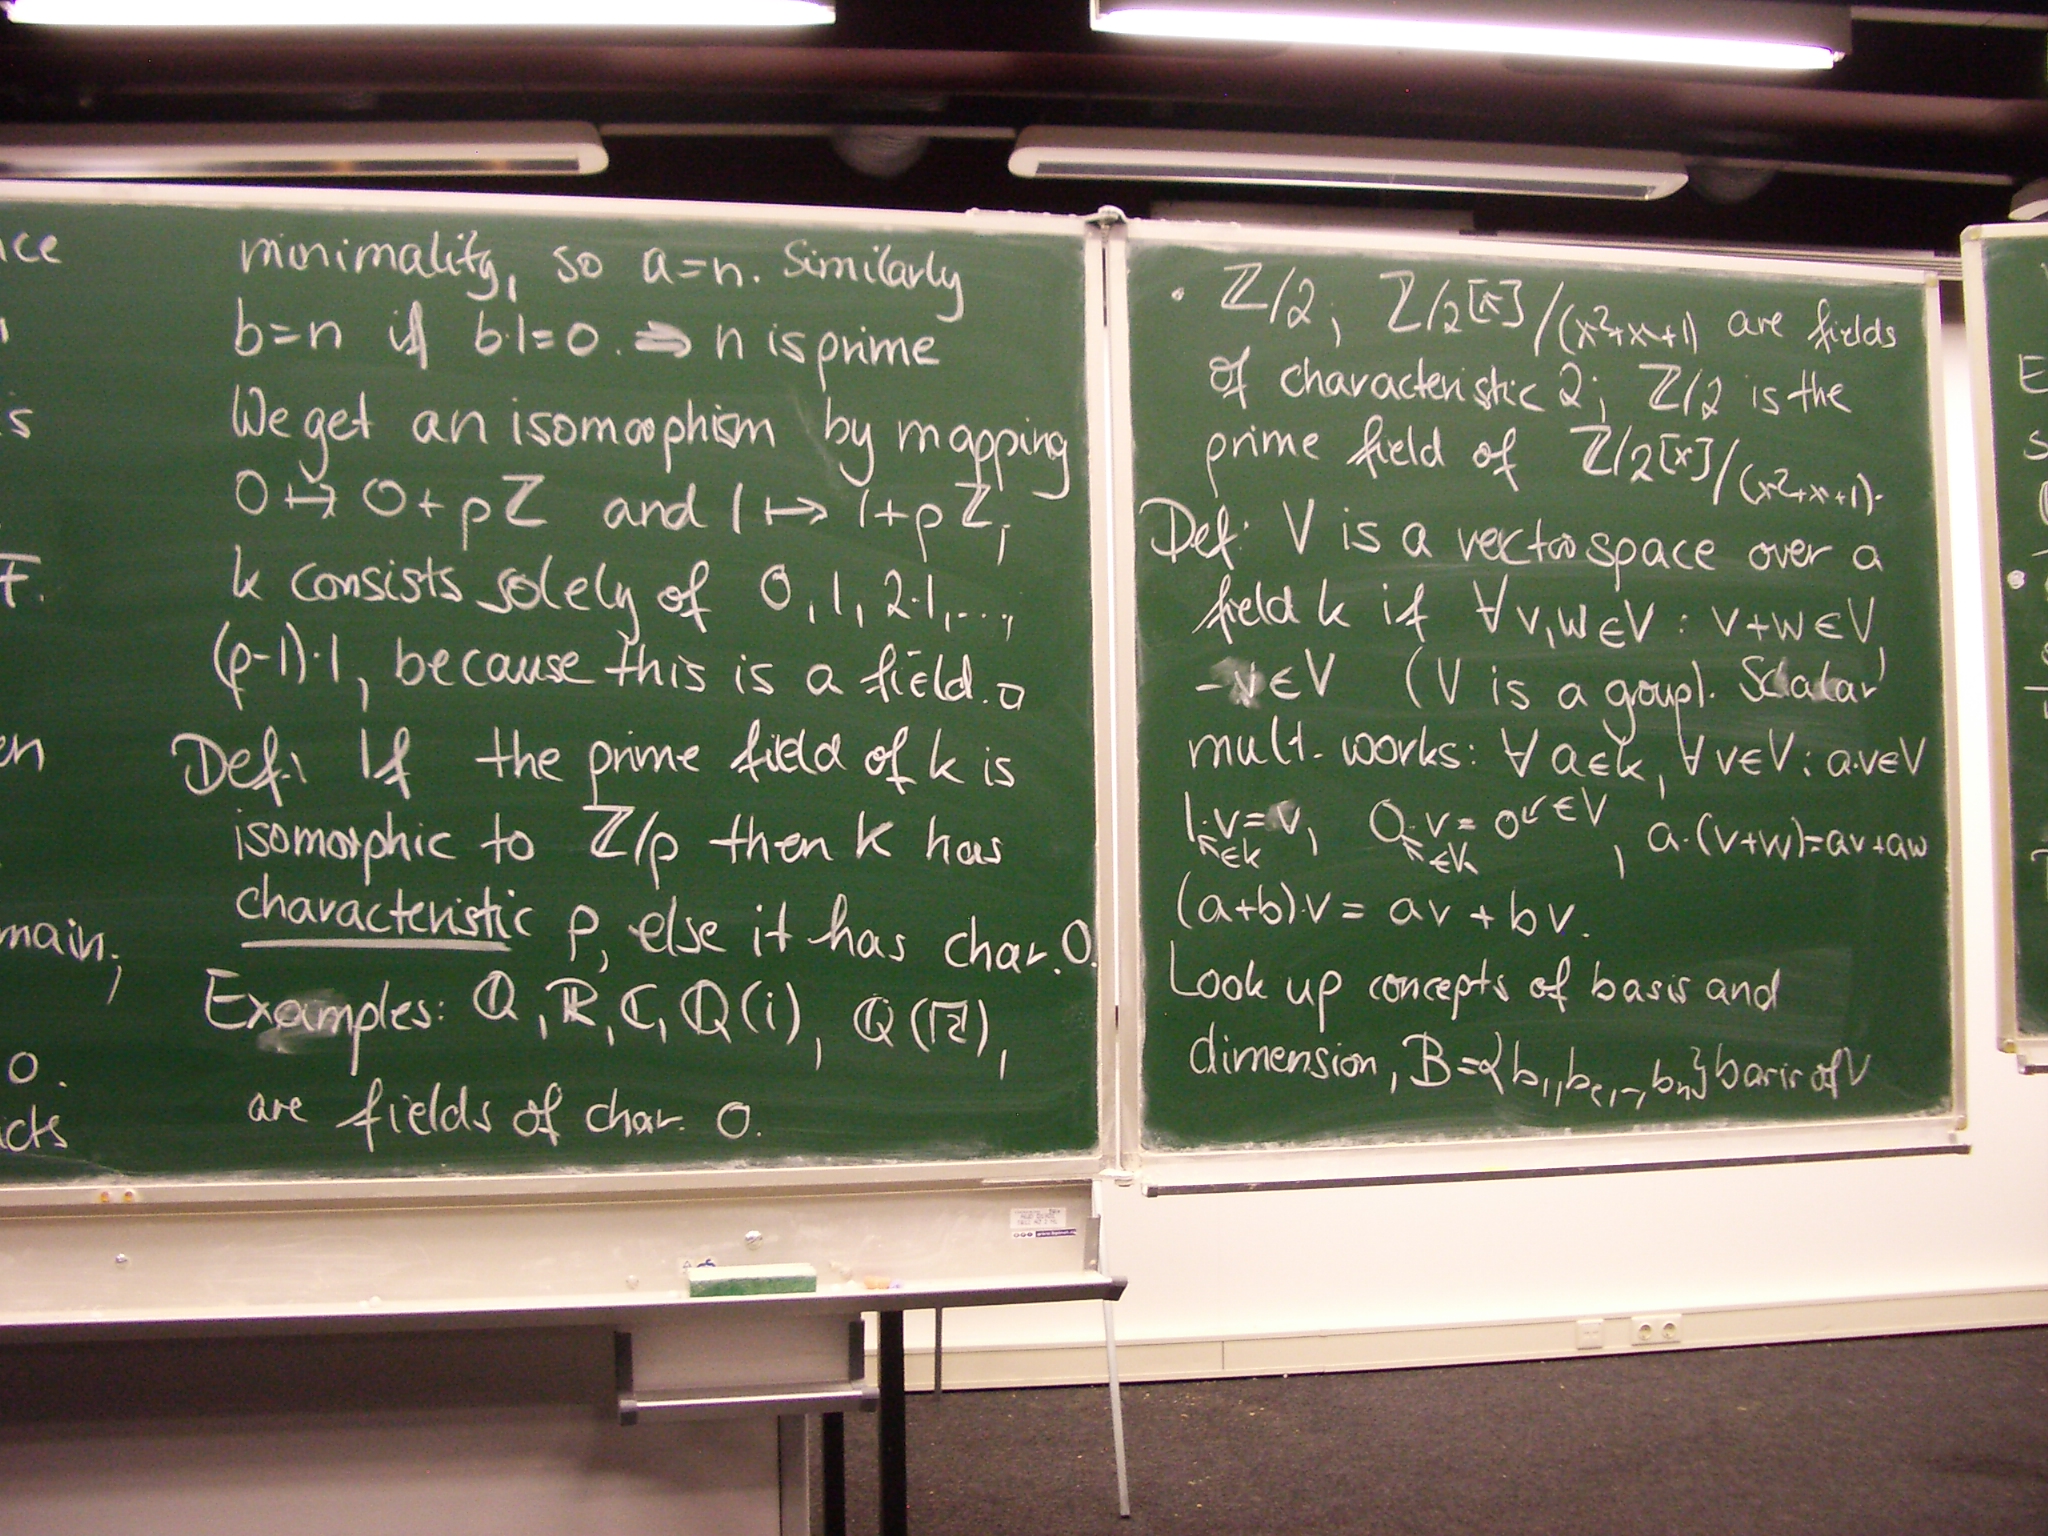 nce
s
F.
en
main,
0.
icts
minimality, so a=n. Similarly
b=n if b·1=0. ⇒ n is prime
We get an isomorphism by mapping
0 ↦ 0+pℤ and 1 ↦ 1+pℤ,
k consists solely of 0, 1, 2·1, ...,
(p-1)·1, because this is a field. □
Def: If the prime field of k is
isomorphic to ℤ/p then k has
characteristic p, else it has char. 0.
Examples: ℚ, ℝ, ℂ, ℚ(i), ℚ(√2),
are fields of char. 0.
• ℤ/2, ℤ/2[x]/(x²+x+1) are fields
of characteristic 2; ℤ/2 is the
prime field of ℤ/2[x]/(x²+x+1).
Def: V is a vectorspace over a
field k if ∀ v,w ∈ V : v+w ∈ V,
-v ∈ V (V is a group). Scalar
mult. works: ∀ a∈k, ∀ v∈V: a·v∈V
1·v=v, 0·v=0 ↙∈V, a·(v+w)=av+aw
↖∈k ↖∈k
(a+b)·v = av + bv.
Look up concepts of basis and
dimension, B={b₁,b₂,...,bₙ} basis of V
E